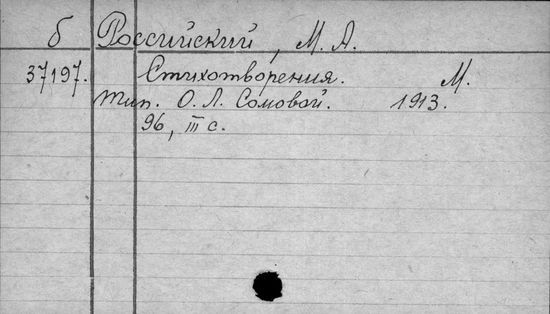 б Российский, М. А.
37197. Стихотворения. М.
тип. О. Л. Сомовой. 1913.
96, III с.